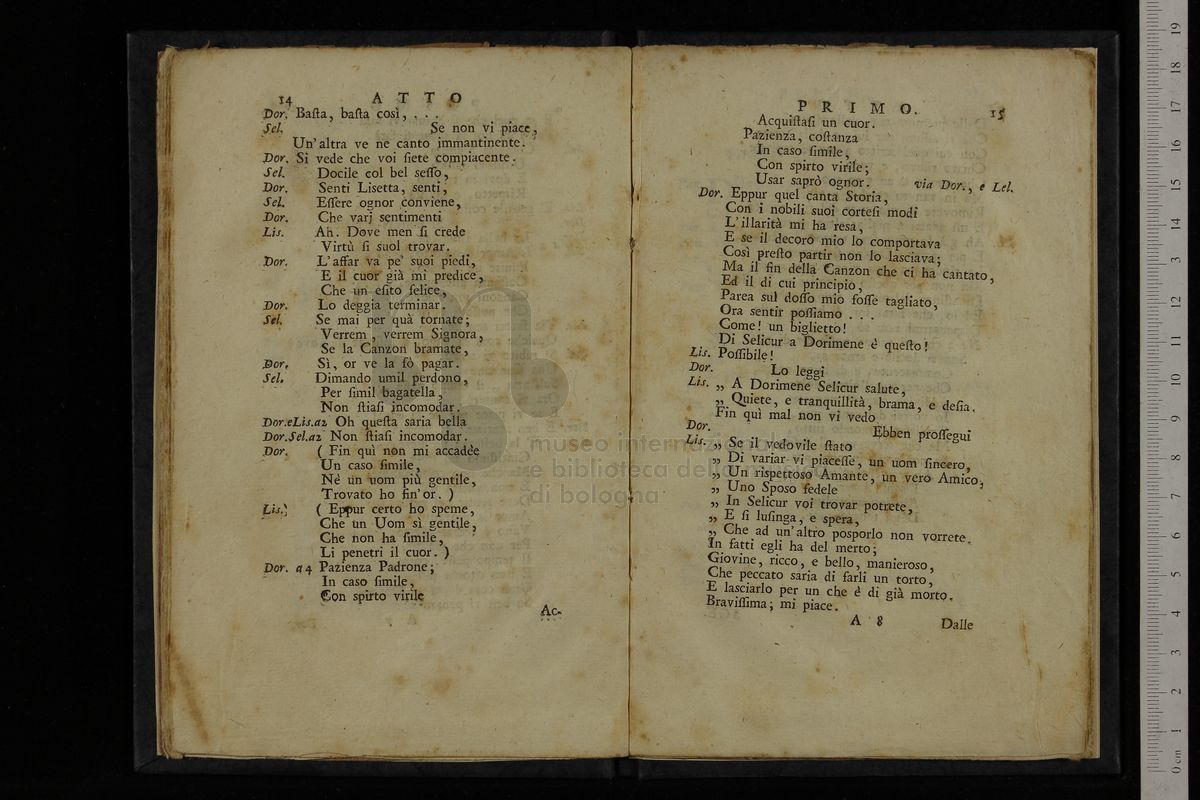 14 ATTO
Dor. Baſta, baſta così, . . .
Sel. Se non vi piace,
Un' altra ve ne canto immantinente.
Dor. Si vede che voi ſiete compiacente.
Sel. Docile col bel ſeſſo,
Dor. Senti Lisetta, senti,
Sel. Eſſere ognor conviene,
Dor. Che varj sentimenti
Lis. Ah. Dove men ſi crede
Virtù ſi suol trovar.
Dor. L'affar va pe' suoi piedi,
E il cuor già mi predice,
Che un eſito felice,
Dor. Lo deggia terminar.
Sel. Se mai per quà tornate;
Verrem, verrem Signora,
Se la Canzon bramate,
Dor. Sì, or ve la fò pagar.
Sel. Dimando umil perdono,
Per ſimil bagatella,
Non ſtiaſi incomodar.
Dor.eLis.a2 Oh queſta saria bella
Dor.Sel.a2 Non ſtiaſi incomodar.
Dor. ( Fin quì non mi accadèe
Un caso ſimile,
Nè un uom più gentile,
Trovato ho fin'or. )
Lis. ( Eppur certo ho speme,
Che un Uom sì gentile,
Che non ha ſimile,
Li penetri il cuor. )
Dor. a4 Pazienza Padrone;
In caso ſimile,
Con spirto virile
Ac-
PRIMO. 15
Acquiſtaſi un cuor.
Pazienza, coſtanza
In caso ſimile,
Con spirto virile;
Usar saprò ognor. via Dor., e Lel.
Dor. Eppur quel canta Storia,
Con i nobili suoi corteſi modi
L'illarità mi ha resa,
E se il decoro mio lo comportava
Così preſto partir non lo lasciava;
Ma il fin della Canzon che ci ha cantato,
Ed il di cui principio,
Parea sul doſſo mio foſſe tagliato,
Ora sentir poſſiamo . . .
Come! un biglietto!
Di Selicur a Dorimene è queſto!
Lis. Poſſibile!
Dor. Lo leggi
Lis. „ A Dorimene Selicur salute,
„ Quiete, e tranquillità, brama, e deſia.
Fin quì mal non vi vedo
Dor. Ebben proſſegui
Lis. „ Se il vedovile ſtato
„ Di variar vi piaceſſe, un uom ſincero,
„ Un rispettoso Amante, un vero Amico,
„ Uno Sposo fedele
„ In Selicur voi trovar potrete,
„ E ſi luſinga, e spera,
„ Che ad un' altro posporlo non vorrete.
In fatti egli ha del merto;
Giovine, ricco, e bello, manieroso,
Che peccato saria di farli un torto,
E lasciarlo per un che è di già morto.
Braviſſima; mi piace.
A 8 Dalle